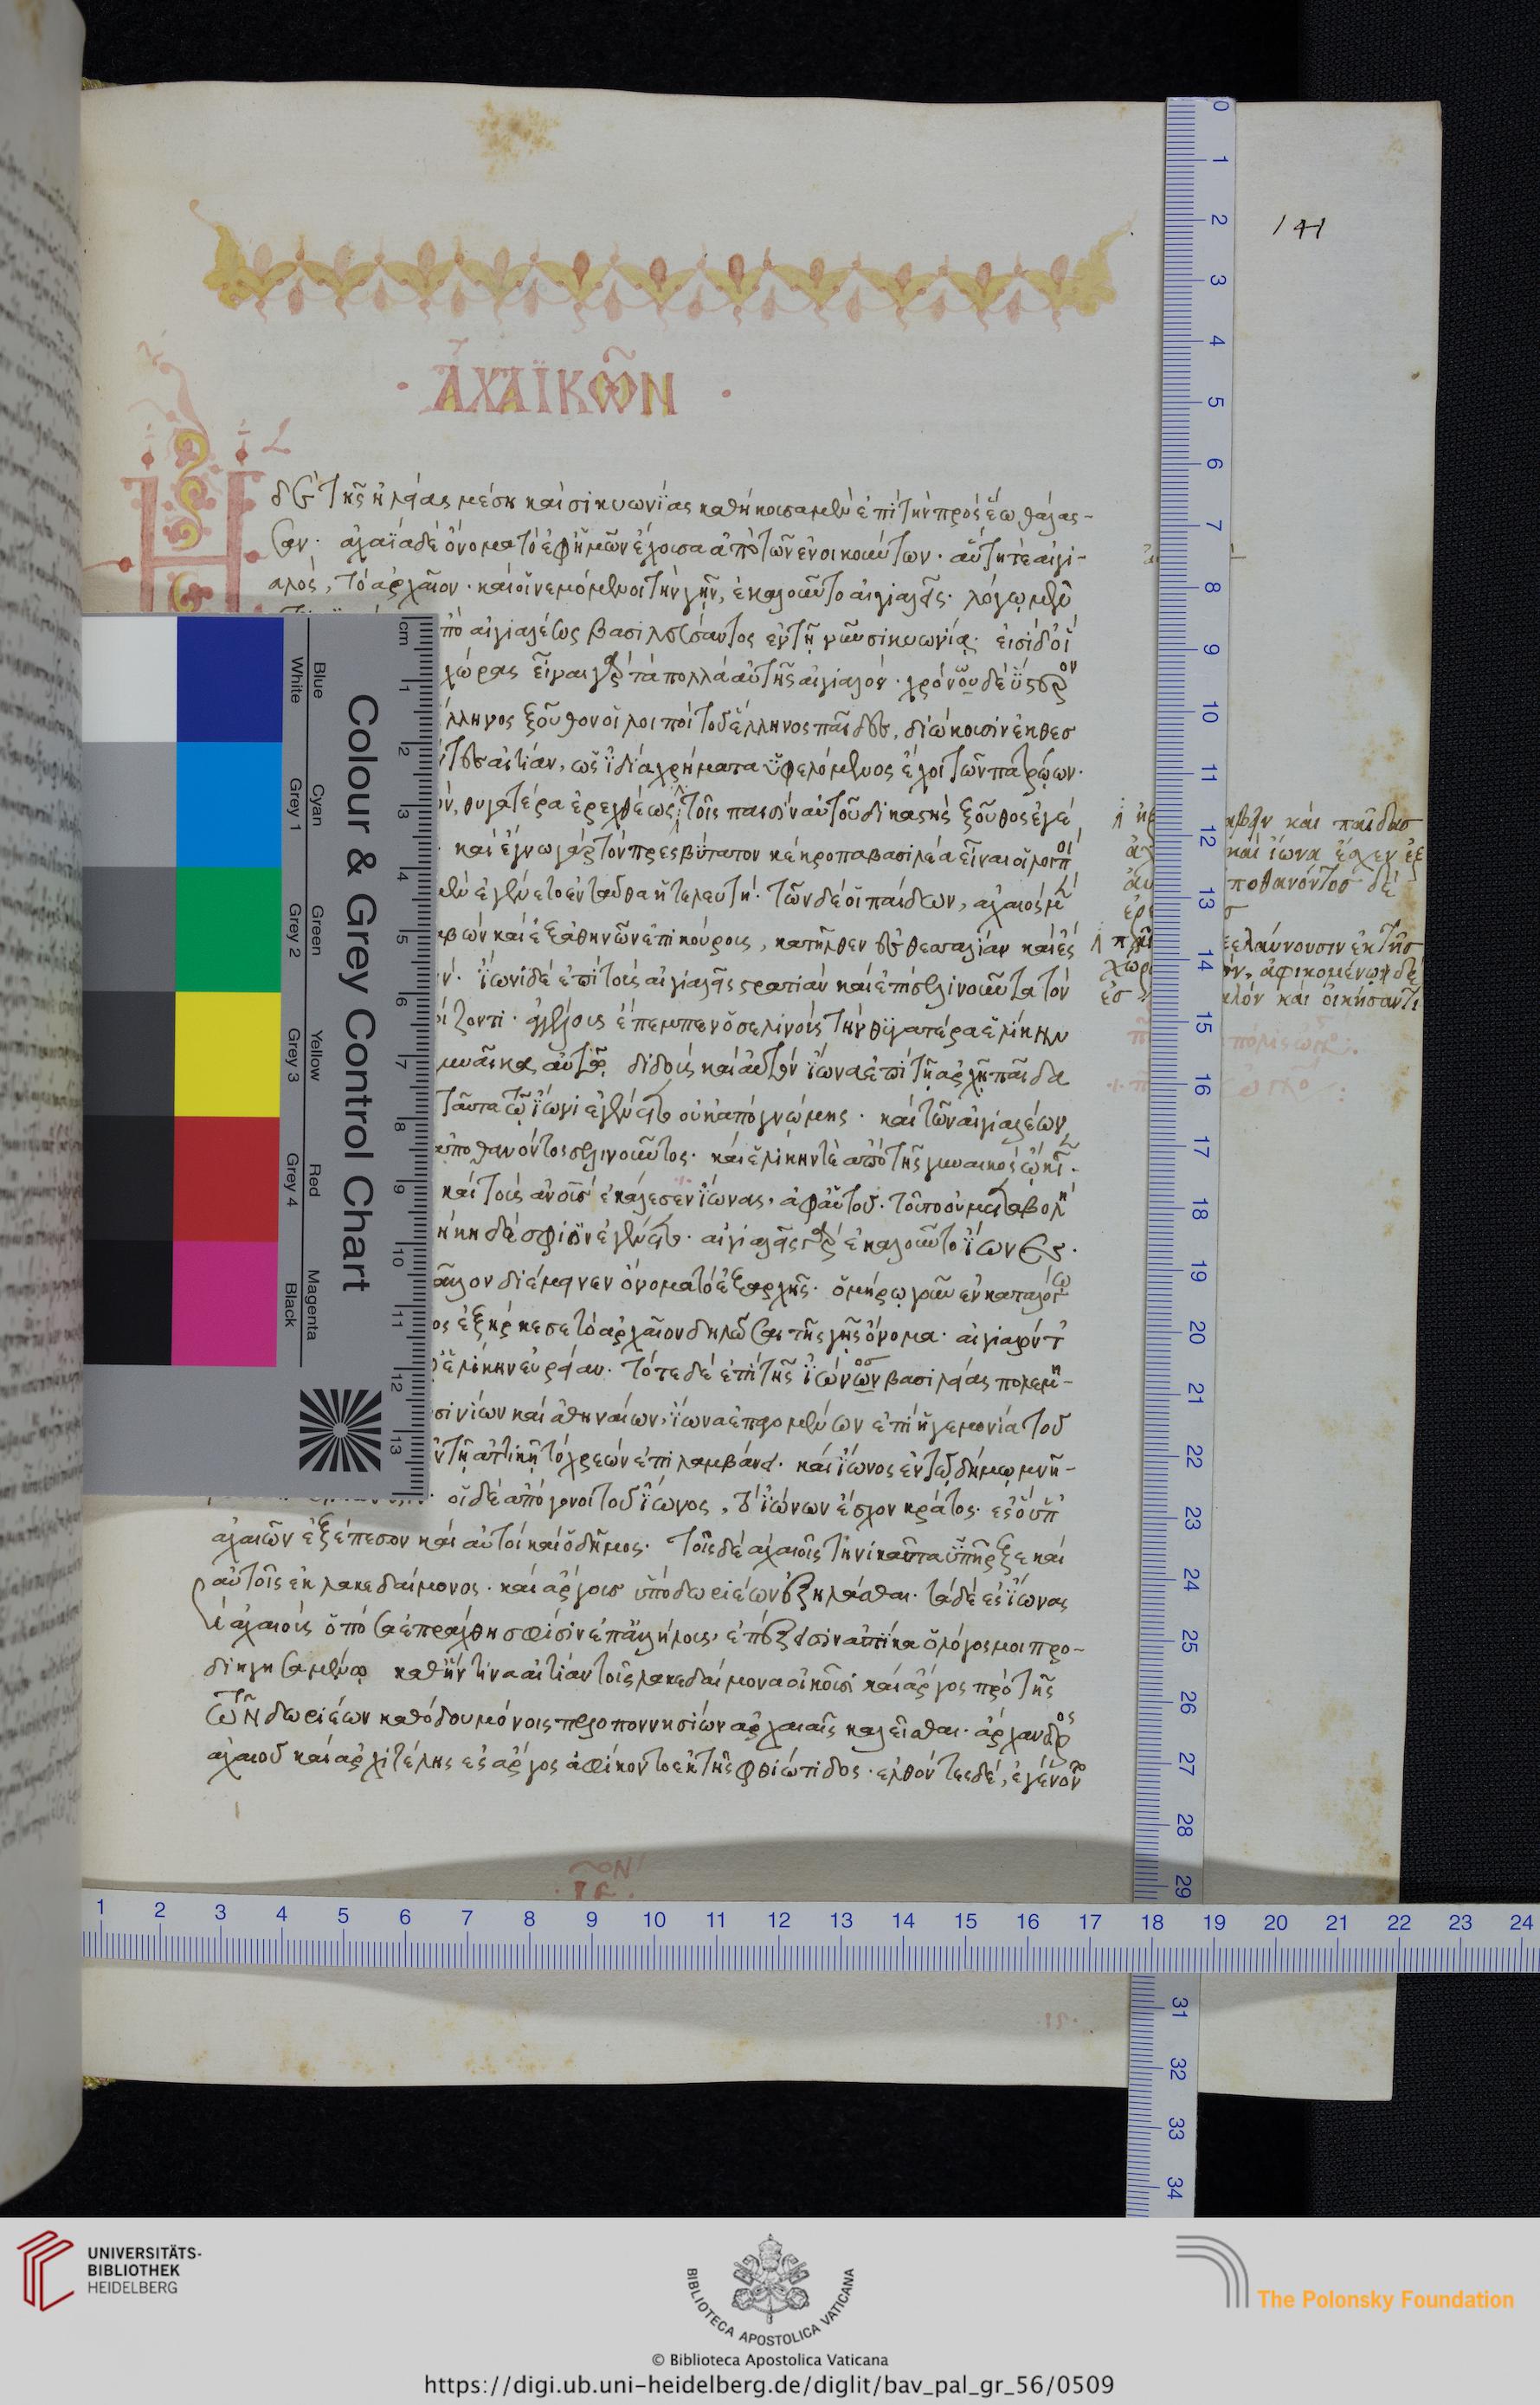 ἈΧΑΪΚΩ͂Ν
141
Ἡ δὲ τῆς ἠλείας μέση καὶ σικυωνίας καθήκουσα μὲν ἐπὶ τὴν πρὸς ἕω θάλας-
σαν· ἀχαΐα δὲ ὄνομα τὸ ἐφ' ἡμῶν ἔχουσα ἀπὸ τῶν ἐνοικούντων· αὐτή τε αἰγι-
αλὸς, τὸ ἀρχαῖον· καὶ οἱ νεμόμενοι τὴν γῆν, ἐκαλοῦντο αἰγιαλεῖς· λόγῳ μὲν
πὸ αἰγιαλέως βασιλεύσαντος ἐν τῇ νῦν σικυωνίᾳ· εἰσὶ δ' οἳ
χώρας εἶναι γὰρ τὰ πολλὰ αὐτῆς αἰγιαλόν· χρόνου δὲ ὕστερον
λληνος ξοῦθον οἱ λοιποὶ τοῦ ἕλληνος παῖδες, διώκουσιν ἐκ θεσ
αἰτίαν, ὡς ἰδίᾳ χρήματα ὑφελόμενος ἔχοι τῶν πατρῴων·
θυγατέρα ἐρεχθέως τοῖς παισὶν αὐτοῦ δικαστὴς ξοῦθος ἐγέ
καὶ ἔγνω γὰρ τὸν πρεσβύτατον κέκροπα βασιλέα εἶναι οἱ λοιποὶ
ἐγένετο ἐνταῦθα ἡ τελευτή· τῶν δὲ οἱ παίδων, ἀχαιὸς μὲν
βὼν καὶ ἐξ ἀθηνῶν ἐπικούρους, κατῆλθεν ἐς θεσσαλίαν καὶ ἐς
ἴωνι δὲ ἐπὶ τοὺς αἰγιαλεῖς στρατιὰν καὶ ἐπὶ σελινοῦντα τὸν
ίζοντι· ἀγγέλους ἔπεμπεν ὁ σελινοῦς τὴν θυγατέρα ἑλίκην
γυναῖκα αὐτῷ διδοὺς καὶ αὐτὸν ἴωνα ἐπὶ τῇ ἀρχῇ παῖδα
ταῦτα τῷ ἴωνι ἐγένετο οὐκ ἀπὸ γνώμης· καὶ τῶν αἰγιαλέων
ἀποθανόντος σελινοῦντος· καὶ ἑλίκην τὲ ἀπὸ τῆς γυναικὸς ᾤκισεν
καὶ τοὺς ἀνους ἐκάλεσεν ἴωνας, ἀφ' αὑτοῦ· τοῦτο οὐ μεταβολὴ
κη δέ σφισιν ἐγένετο· αἰγιαλεῖς γὰρ ἐκαλοῦντο ἴωνες·
μᾶλλον διέμεινεν ὄνομα τὸ ἐξ ἀρχῆς· ὁμήρῳ γοῦν ἐν καταλόγῳ
ος ἐξήρκεσε τὸ ἀρχαῖον δηλῶσαι τῆς γῆς ὄνομα· αἰγιαλόν τ'
ἑλίκην εὐρεῖαν· τότε δὲ ἐπὶ τῆς ἰώνων βασιλείας πολεμη-
σινίων καὶ ἀθηναίων, ἴωνα ἐπαγομένων ἐπὶ ἡγεμονία τοῦ
ἐν τῇ ἀττικῇ τὸ χρεὼν ἐπιλαμβάνει· καὶ ἴωνος ἐν τῷ δήμῳ μνῆ-
οἱ δὲ ἀπόγονοι τοῦ ἴωνος, τὸ ἰώνων ἔσχον κράτος· ἐς ὃ ὑπ'
ἀχαιῶν ἐξέπεσον καὶ αὐτοὶ καὶ ὁ δῆμος· τοῖς δὲ ἀχαιοῖς τηνικαῦτα ὑπῆρξε καὶ
αὐτοῖς ἐκ λακεδαίμονος· καὶ ἄργους ὑπὸ δωριέων ἐξηλάσθαι· τὰ δὲ ἐς ἴωνας
καὶ ἀχαιοὺς ὁπόσα ἐπράχθη σφίσιν ἐπ' ἀλλήλους, ἐπέξεισιν αὐτίκα ὁ λόγος μοι προ-
διηγησαμένῳ καθ' ἥντινα αἰτίαν τοῖς λακεδαίμονα οἰκοῦσι καὶ ἄργος πρὸ τῆς
τῶν δωριέων καθόδου μόνοις πελοποννησίων ἀχαιοῖς καλεῖσθαι· ἄρχανδρος
ἀχαιοῦ καὶ ἀρχιτέλης ἐς ἄργος ἀφίκοντο ἐκ τῆς φθιώτιδος· ἐλθόντες δὲ, ἐγένοντο
καὶ παῖδας
καὶ ἴωνα ἔσχεν ἐξ
ποθανόντος δὲ
ξελαύνουσιν ἐκ τῆς
ἀφικομένῳ δὲ
καὶ οἰκήσαντι
Colour & Grey Control Chart
Blue Cyan Green Yellow Red Magenta
White Grey 1 Grey 2 Grey 3 Grey 4 Black
cm 1 2 3 4 5 6 7 8 9 10 11 12 13
0 1 2 3 4 5 6 7 8 9 10 11 12 13 14 15 16 17 18 19 20 21 22 23 24 25 26 27 28 29 31 32 33 34
1 2 3 4 5 6 7 8 9 10 11 12 13 14 15 16 17 18 19 20 21 22 23 24
UNIVERSITÄTS-
BIBLIOTHEK
HEIDELBERG
BIBLIOTECA APOSTOLICA VATICANA
The Polonsky Foundation
© Biblioteca Apostolica Vaticana
https://digi.ub.uni-heidelberg.de/diglit/bav_pal_gr_56/0509